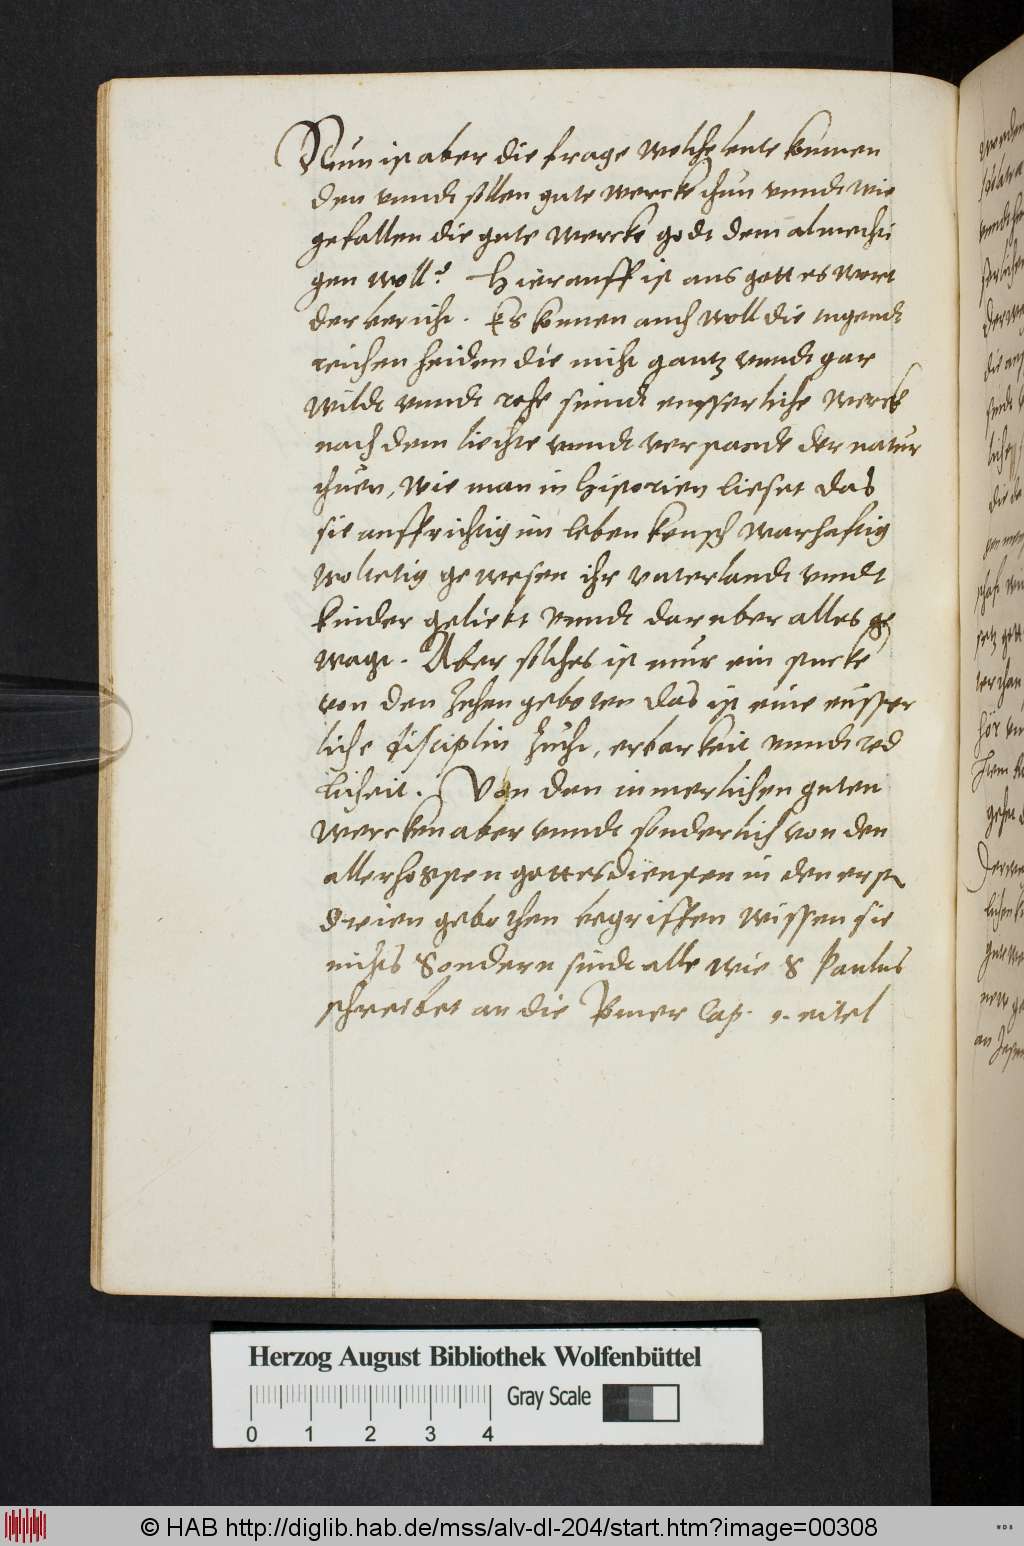 Nun ist aber die frage welche leute konnen
den unndt sollen gute wercke thun unndt wie
gefallen die gute wercke godt dem almechti
gen woll? Hierauff ist aus gottes wort
der bericht. Es konnen auch woll die tugendt
reichen heiden die nicht gantz unndt gar
wildt unndt rohe sindt eusserliche werck
nach dem liechte unndt verstande der natur
thuen, wie man in historien lieset das
sie auffrichtig im leben keusch warhaftig
woltetig gewesen ihr vaterlandt unndt
kinder geliebt unndt daruber alles ge
wagt. Aber solches ist nur ein stucke
von den zehen geboten das ist eine eusser
liche disciplin zucht, erbarkeit unndt red
licheit. Von den innerlichen guten
wercken aber unndt sonderlich von den
allerhogsten gottesdiensten in den erst
dreien gebothen begriffen wissen sie
nichts Sondern sindt alle wie S Paulus
schreibet an die Romer Cap. 1. eitel
Herzog August Bibliothek Wolfenbüttel
Gray Scale
0 1 2 3 4
© HAB http://diglib.hab.de/mss/alv-dl-204/start.htm?image=00308